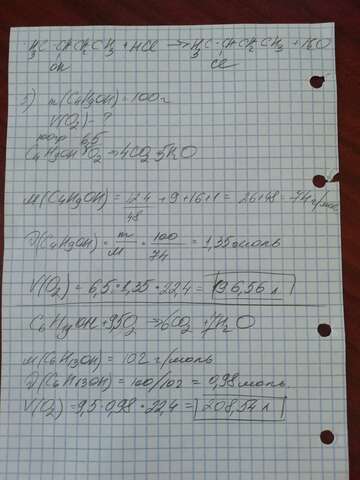 H3C-CHCH2CH3 + HCl → H3C-CHCH2CH3 + H2O
OH Cl
2) m(C4H9OH) = 100г
V(O2) - ?
6,5
C4H9OH + O2 → 4CO2 + 5H2O
M(C4H9OH) = 12·4 + 9 + 16 + 1 = 26 + 48 = 74 г/моль
48
ν(C4H9OH) = m/M = 100/74 = 1,35 моль
V(O2) = 6,5 · 1,35 · 22,4 = 196,56 л
OH + 9,5O2 → 6CO2 + 7H2O
M(C6H13OH) = 102 г/моль
ν(C6H13OH) = 100/102 = 0,98 моль
V(O2) = 9,5 · 0,98 · 22,4 = 208,54 л